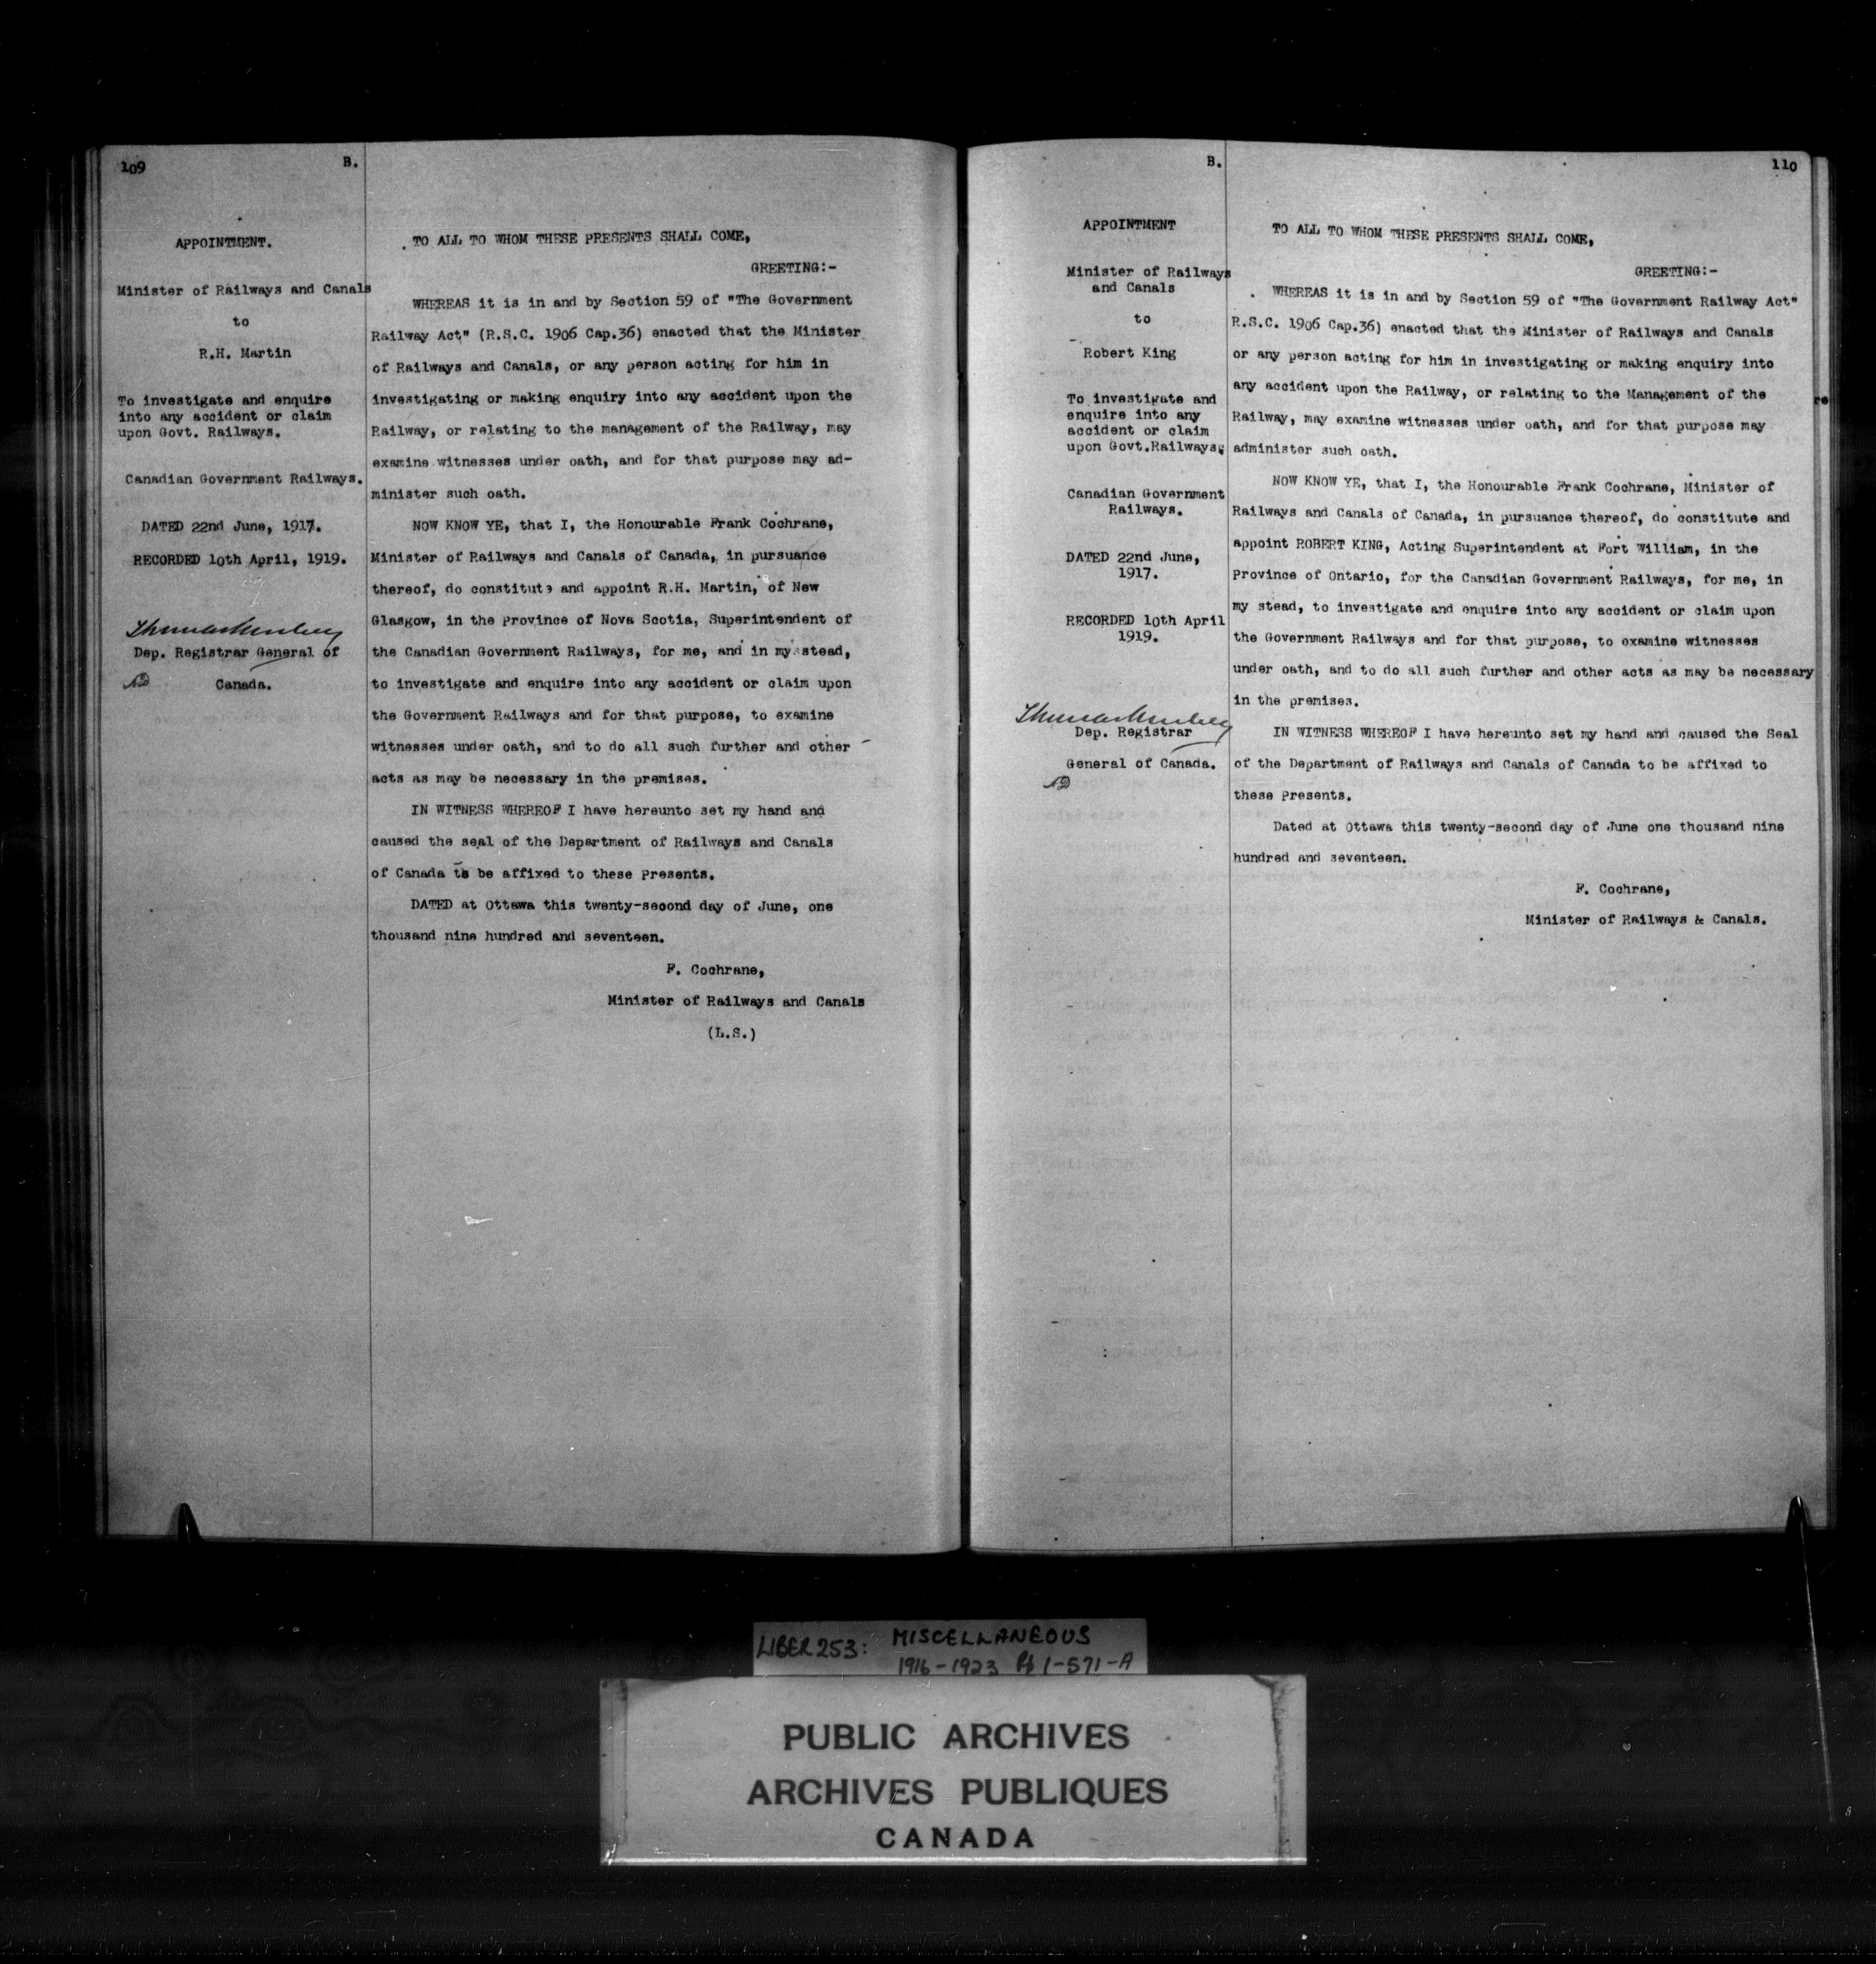 109 B.
APPOINTMENT.
Minister of Railways and Canals
to
R.H. Martin
To investigate and enquire
into any accident or claim
upon Govt. Railways.
Canadian Government Railways.
DATED 22nd June, 1917.
RECORDED 10th April, 1919.
Dep. Registrar General of
Canada.
TO ALL TO WHOM THESE PRESENTS SHALL COME,
GREETING:-
WHEREAS it is in and by Section 59 of "The Government
Railway Act" (R.S.C. 1906 Cap.36) enacted that the Minister
of Railways and Canals, or any person acting for him in
investigating or making enquiry into any accident upon the
Railway, or relating to the management of the Railway, may
examine witnesses under oath, and for that purpose may ad-
minister such oath.
NOW KNOW YE, that I, the Honourable Frank Cochrane,
Minister of Railways and Canals of Canada, in pursuance
thereof, do constitute and appoint R.H. Martin, of New
Glasgow, in the Province of Nova Scotia, Superintendent of
the Canadian Government Railways, for me, and in my stead,
to investigate and enquire into any accident or claim upon
the Government Railways and for that purpose, to examine
witnesses under oath, and to do all such further and other
acts as may be necessary in the premises.
IN WITNESS WHEREOF I have hereunto set my hand and
caused the seal of the Department of Railways and Canals
of Canada to be affixed to these Presents.
DATED at Ottawa this twenty-second day of June, one
thousand nine hundred and seventeen.
F. Cochrane,
Minister of Railways and Canals
(L.S.)
B. 110
APPOINTMENT
Minister of Railways
and Canals
to
Robert King
To investigate and
enquire into any
accident or claim
upon Govt.Railways.
Canadian Government
Railways.
DATED 22nd June,
1917.
RECORDED 10th April
1919.
Dep. Registrar
General of Canada.
TO ALL TO WHOM THESE PRESENTS SHALL COME,
GREETING:-
WHEREAS it is in and by Section 59 of "The Government Railway Act"
R.S.C. 1906 Cap.36) enacted that the Minister of Railways and Canals
or any person acting for him in investigating or making enquiry into
any accident upon the Railway, or relating to the Management of the
Railway, may examine witnesses under oath, and for that purpose may
administer such oath.
NOW KNOW YE, that I, the Honourable Frank Cochrane, Minister of
Railways and Canals of Canada, in pursuance thereof, do constitute and
appoint ROBERT KING, Acting Superintendent at Fort William, in the
Province of Ontario, for the Canadian Government Railways, for me, in
my stead, to investigate and enquire into any accident or claim upon
the Government Railways and for that purpose, to examine witnesses
under oath, and to do all such further and other acts as may be necessary
in the premises.
IN WITNESS WHEREOF I have hereunto set my hand and caused the Seal
of the Department of Railways and Canals of Canada to be affixed to
these Presents.
Dated at Ottawa this twenty-second day of June one thousand nine
hundred and seventeen.
F. Cochrane,
Minister of Railways & Canals.
LIBER 253: MISCELLANEOUS
1916-1923 Pt 1-571-A
PUBLIC ARCHIVES
ARCHIVES PUBLIQUES
CANADA